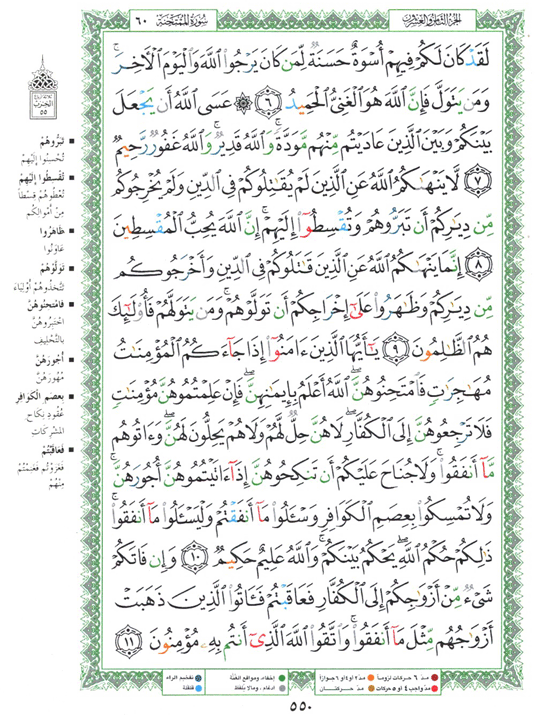 الجزء الثامن والعشرون
سورة الممتحنة ٦٠
لَقَدْ كَانَ لَكُمْ فِيهِمْ أُسْوَةٌ حَسَنَةٌ لِّمَن كَانَ يَرْجُوا۟ ٱللَّهَ وَٱلْيَوْمَ ٱلْـَٔاخِرَ ۚ
وَمَن يَتَوَلَّ فَإِنَّ ٱللَّهَ هُوَ ٱلْغَنِىُّ ٱلْحَمِيدُ ٦ ۞ عَسَى ٱللَّهُ أَن يَجْعَلَ
بَيْنَكُمْ وَبَيْنَ ٱلَّذِينَ عَادَيْتُم مِّنْهُم مَّوَدَّةً ۚ وَٱللَّهُ قَدِيرٌ ۚ وَٱللَّهُ غَفُورٌ رَّحِيمٌ
٧ لَّا يَنْهَىٰكُمُ ٱللَّهُ عَنِ ٱلَّذِينَ لَمْ يُقَـٰتِلُوكُمْ فِى ٱلدِّينِ وَلَمْ يُخْرِجُوكُم
مِّن دِيَـٰرِكُمْ أَن تَبَرُّوهُمْ وَتُقْسِطُوٓا۟ إِلَيْهِمْ ۚ إِنَّ ٱللَّهَ يُحِبُّ ٱلْمُقْسِطِينَ
٨ إِنَّمَا يَنْهَىٰكُمُ ٱللَّهُ عَنِ ٱلَّذِينَ قَـٰتَلُوكُمْ فِى ٱلدِّينِ وَأَخْرَجُوكُم
مِّن دِيَـٰرِكُمْ وَظَـٰهَرُوا۟ عَلَىٰٓ إِخْرَاجِكُمْ أَن تَوَلَّوْهُمْ ۚ وَمَن يَتَوَلَّهُمْ فَأُو۟لَـٰٓئِكَ
هُمُ ٱلظَّـٰلِمُونَ ٩ يَـٰٓأَيُّهَا ٱلَّذِينَ ءَامَنُوٓا۟ إِذَا جَآءَكُمُ ٱلْمُؤْمِنَـٰتُ
مُهَـٰجِرَٰتٍ فَٱمْتَحِنُوهُنَّ ۖ ٱللَّهُ أَعْلَمُ بِإِيمَـٰنِهِنَّ ۖ فَإِنْ عَلِمْتُمُوهُنَّ مُؤْمِنَـٰتٍ
فَلَا تَرْجِعُوهُنَّ إِلَى ٱلْكُفَّارِ ۖ لَا هُنَّ حِلٌّ لَّهُمْ وَلَا هُمْ يَحِلُّونَ لَهُنَّ ۖ وَءَاتُوهُم
مَّآ أَنفَقُوا۟ ۚ وَلَا جُنَاحَ عَلَيْكُمْ أَن تَنكِحُوهُنَّ إِذَآ ءَاتَيْتُمُوهُنَّ أُجُورَهُنَّ ۚ
وَلَا تُمْسِكُوا۟ بِعِصَمِ ٱلْكَوَافِرِ وَسْـَٔلُوا۟ مَآ أَنفَقْتُمْ وَلْيَسْـَٔلُوا۟ مَآ أَنفَقُوا۟ ۚ
ذَٰلِكُمْ حُكْمُ ٱللَّهِ ۖ يَحْكُمُ بَيْنَكُمْ ۚ وَٱللَّهُ عَلِيمٌ حَكِيمٌ ١٠ وَإِن فَاتَكُمْ
شَىْءٌ مِّنْ أَزْوَٰجِكُمْ إِلَى ٱلْكُفَّارِ فَعَاقَبْتُمْ فَـَٔاتُوا۟ ٱلَّذِينَ ذَهَبَتْ
أَزْوَٰجُهُم مِّثْلَ مَآ أَنفَقُوا۟ ۚ وَٱتَّقُوا۟ ٱللَّهَ ٱلَّذِىٓ أَنتُم بِهِۦ مُؤْمِنُونَ ١١
الحزب
٥٥
تَبَرُّوهُمْ
تُحْسِنُوا إِلَيْهِمْ
تُقْسِطُوا إِلَيْهِمْ
تُعْطُوهُمْ قِسْطًا
مِنْ أَمْوَالِكُمْ
ظَاهَرُوا
عَاوَنُوا
تَوَلَّوْهُمْ
تَتَّخِذُوهُمْ أَوْلِيَاءَ
فَامْتَحِنُوهُنَّ
اخْتَبِرُوهُنَّ
بِالتَّحْلِيفِ
أُجُورَهُنَّ
مُهُورَهُنَّ
بِعِصَمِ الْكَوَافِرِ
عُقُودِ نِكَاحِ
الْمُشْرِكَاتِ
فَعَاقَبْتُمْ
فَغَزَوْتُمْ فَغَنِمْتُمْ
مِنْهُمْ
مدّ ٦ حركات لزوماً
مدّ ٢ أو ٤ أو ٦ جوازاً
إخفاء، ومواقع الغنّة
تفخيم الراء
مدّ واجب ٤ أو ٥ حركات
مدّ حركتان
إدغام، وما لا يُلفظ
قلقلة
٥٥٠